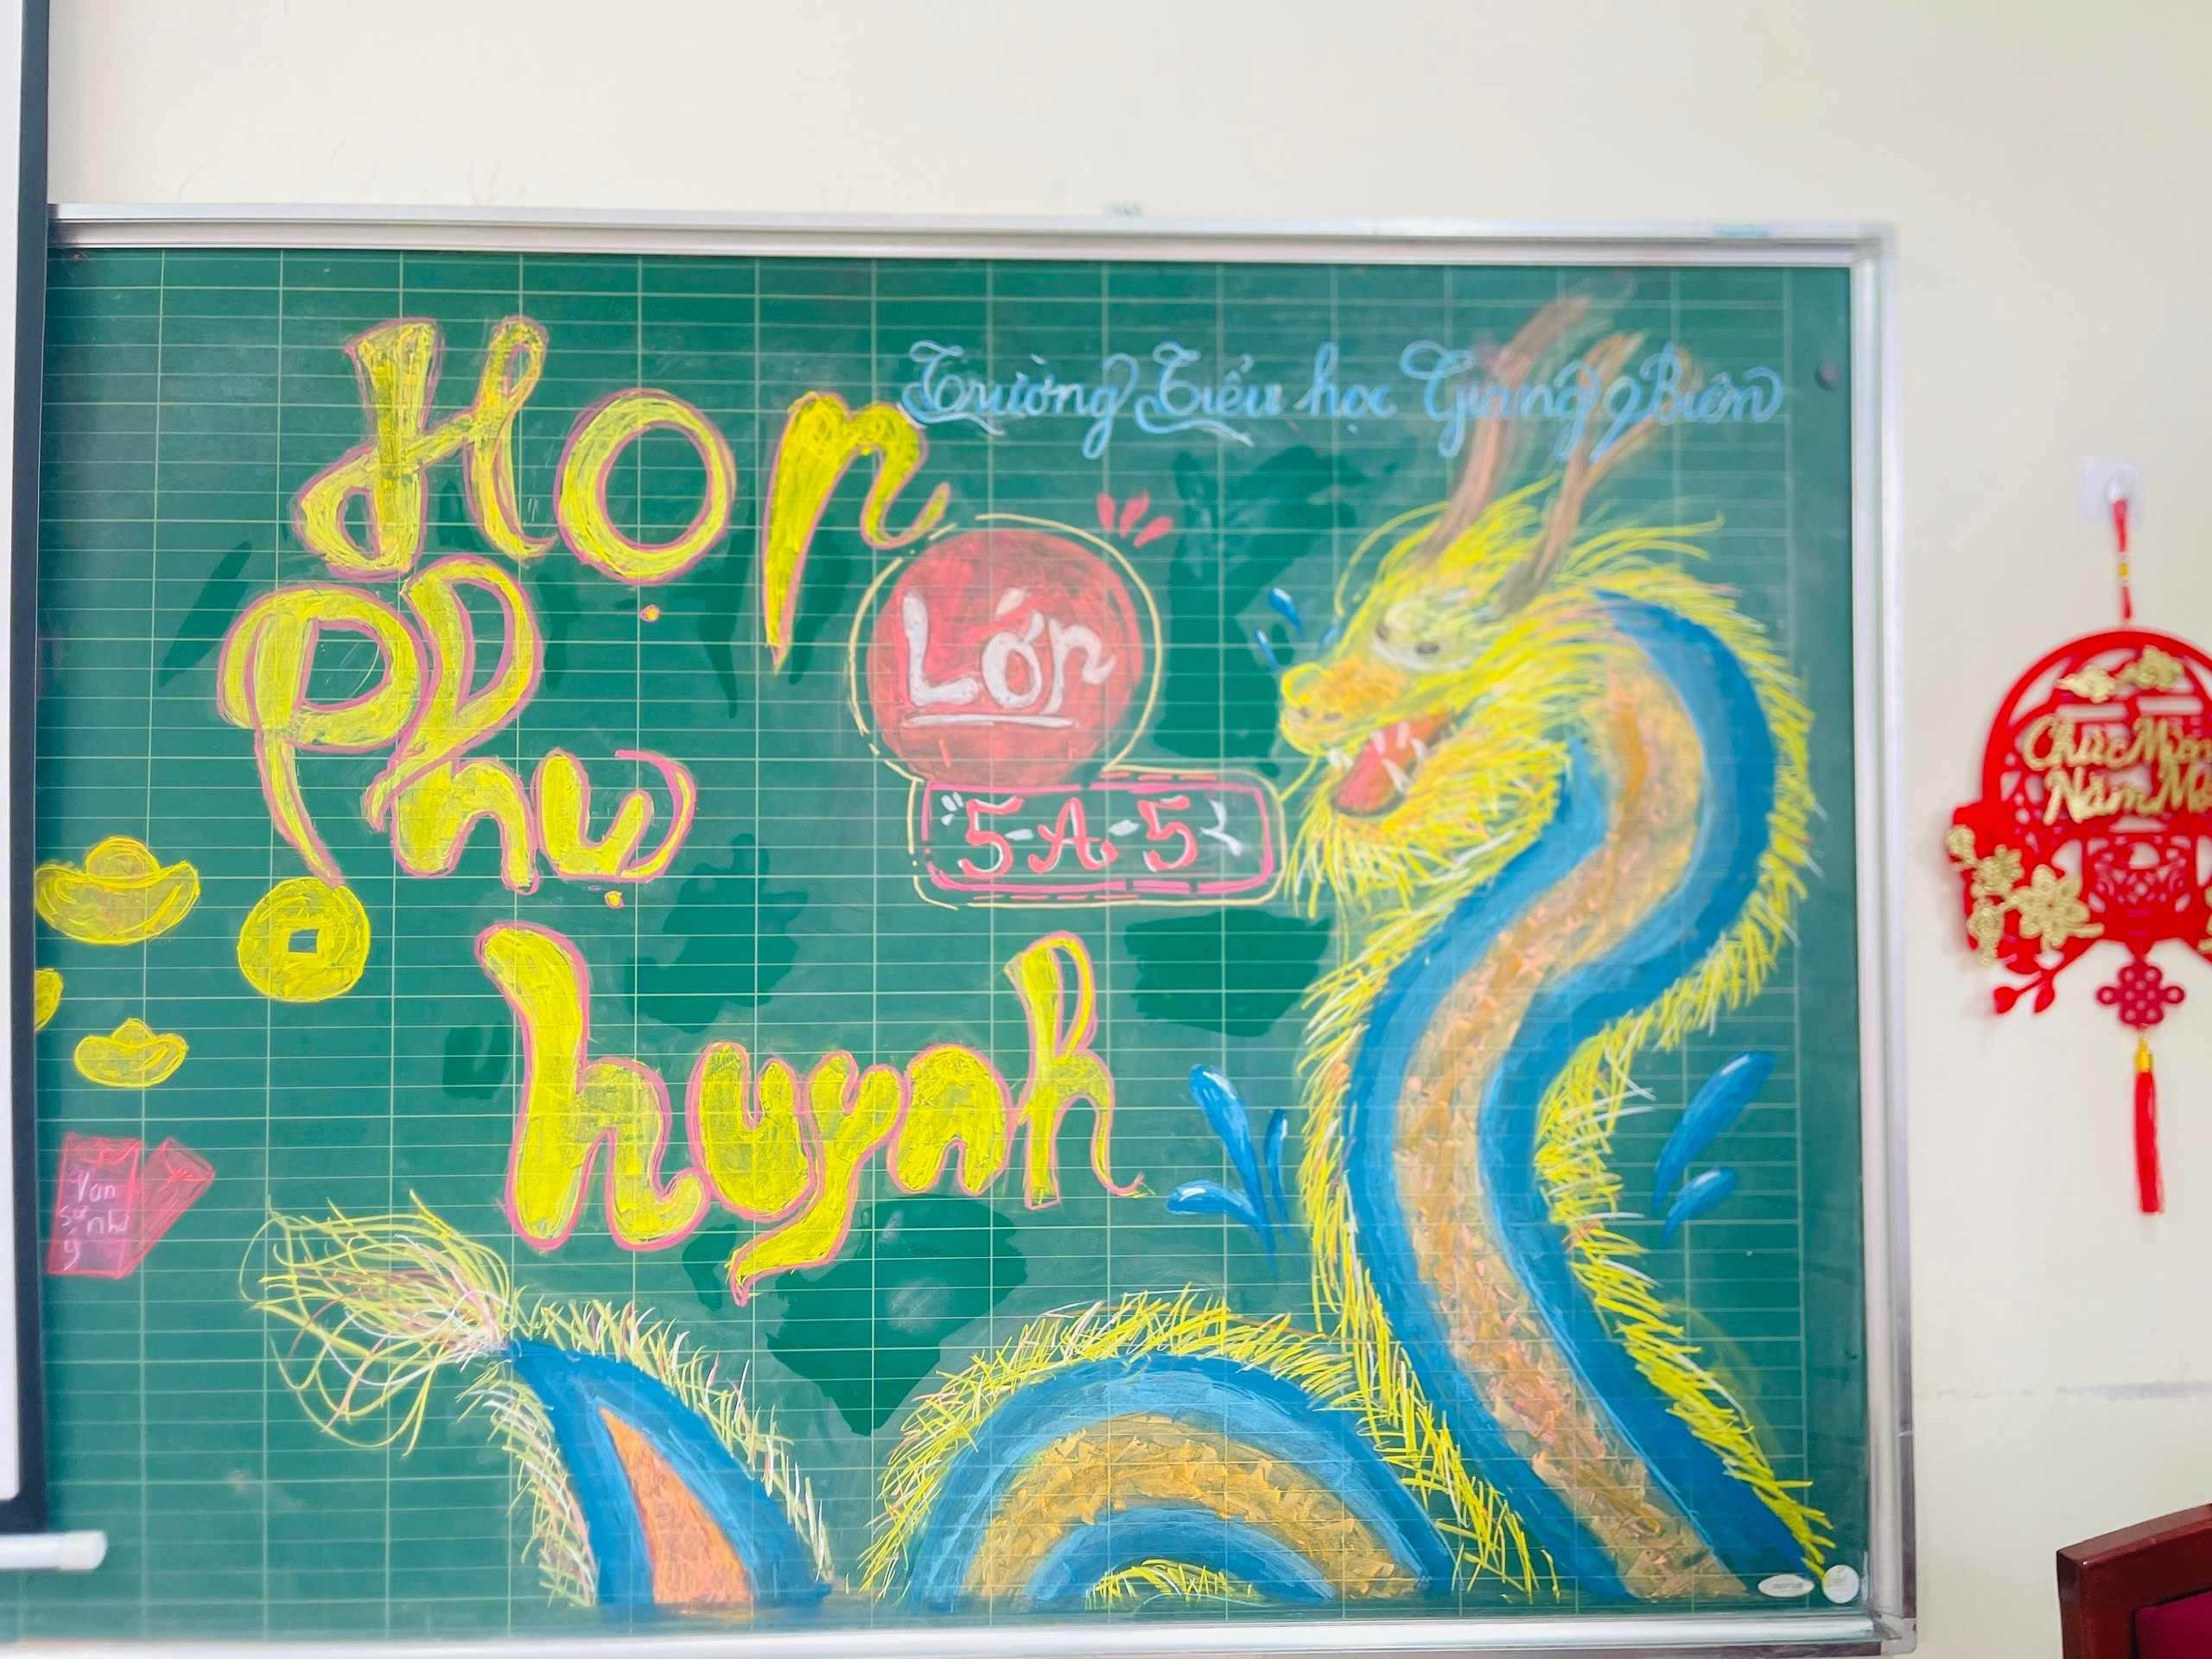 Trường Tiểu học Giang Biên
Họp
Phụ
huynh
Lớp
5A5
Vạn
sự như
ý
Chúc Mừng
Năm Mới